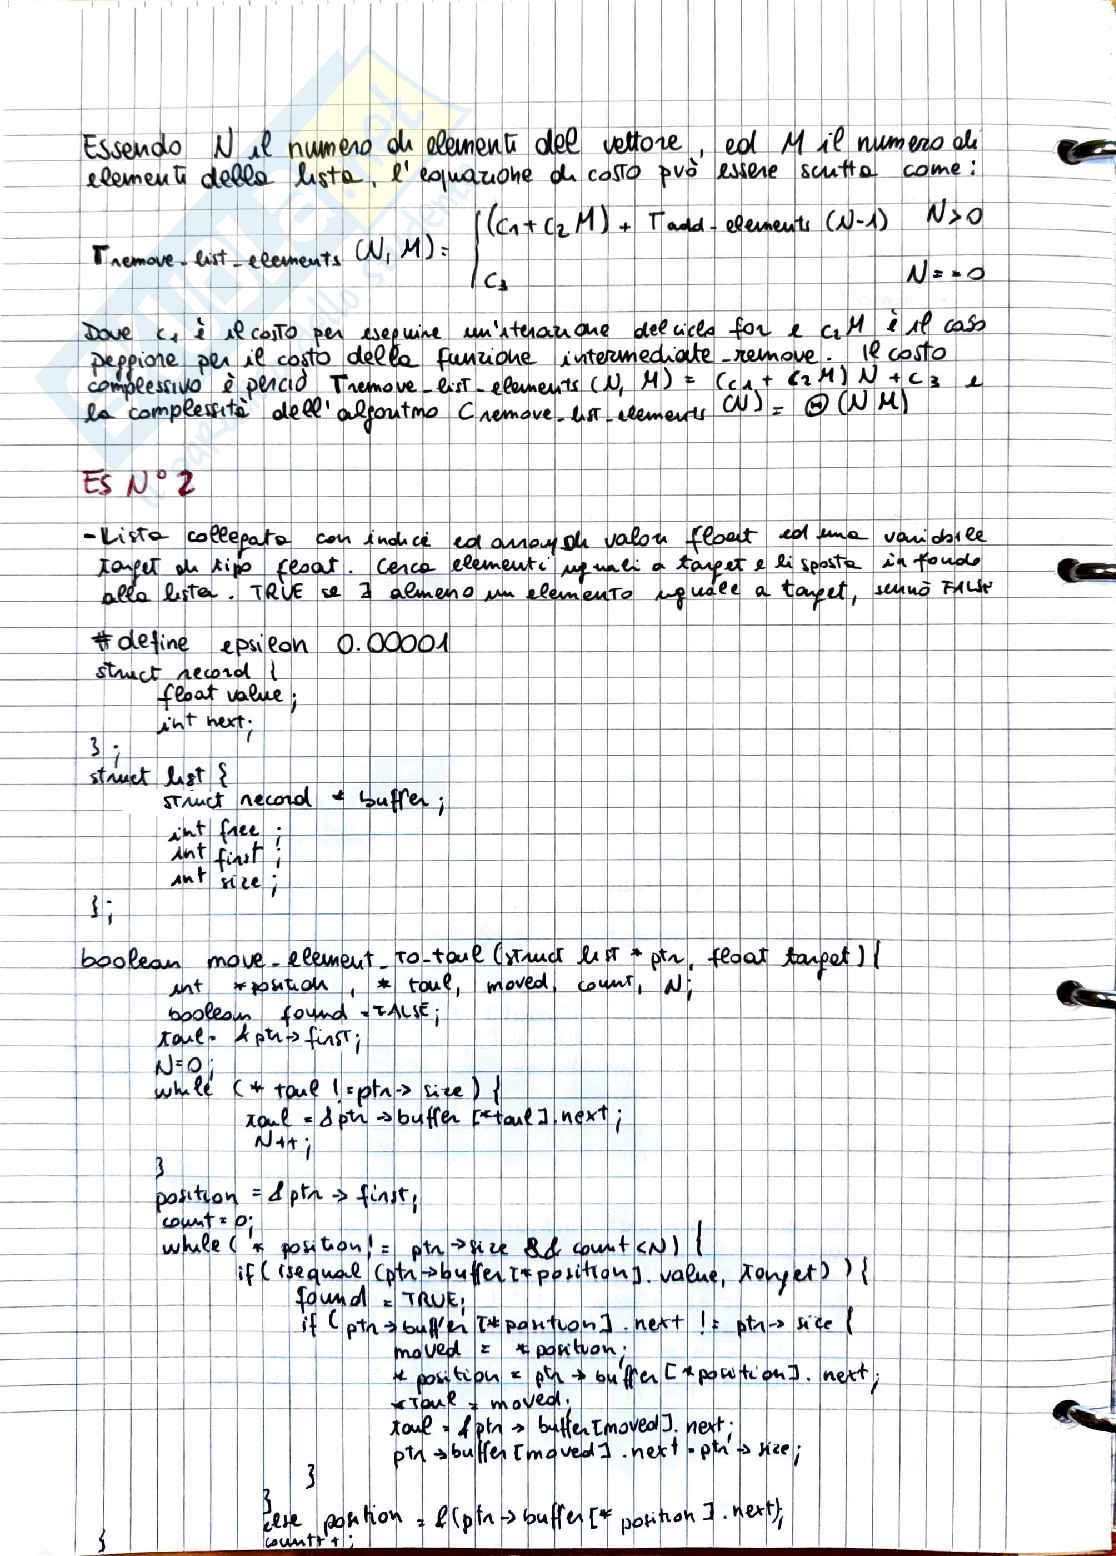 Essendo N il numero di elementi del vettore, ed M il numero di
elementi della lista, l'equazione di costo può essere scritta come:
Tremove_list_elements (N, M) = { (C1 + C2 M) + Tadd_elements (N-1) N>0
C3 N==0
Dove C1 è il costo per eseguire un'iterazione del ciclo for e C2M è il caso
peggiore per il costo della funzione intermediate_remove. Il costo
complessivo è perciò Tremove_list_elements (N, M) = (C1 + C2M) N + C3 e
la complessità dell'algoritmo Cremove_list_elements (N) = Θ(NM)
ES N°2
- Lista collegata con indici ed array di valori float ed una variabile
target di tipo float. Cerca elementi uguali a target e li sposta in fondo
alla lista. TRUE se ∃ almeno un elemento uguale a target, sennò FALSE
#define epsilon 0.00001
struct record {
float value;
int next;
};
struct list {
struct record * buffer;
int free;
int first;
int size;
};
boolean move_element_to_tail (struct list * ptr, float target) {
int *position, * tail, moved, count, N;
boolean found = FALSE;
tail = &ptr->first;
N=0;
while (* tail != ptr->size) {
tail = &ptr->buffer[*tail].next;
N++;
}
position = &ptr->first;
count = 0;
while (* position != ptr->size && count<N) {
if (isequal (ptr->buffer[*position].value, target)) {
found = TRUE;
if (ptr->buffer[*position].next != ptr->size {
moved = *position;
* position = ptr->buffer[*position].next;
*tail = moved;
tail = &ptr->buffer[moved].next;
ptr->buffer[moved].next = ptr->size;
}
}
else position = &(ptr->buffer[* position].next);
count++;
}